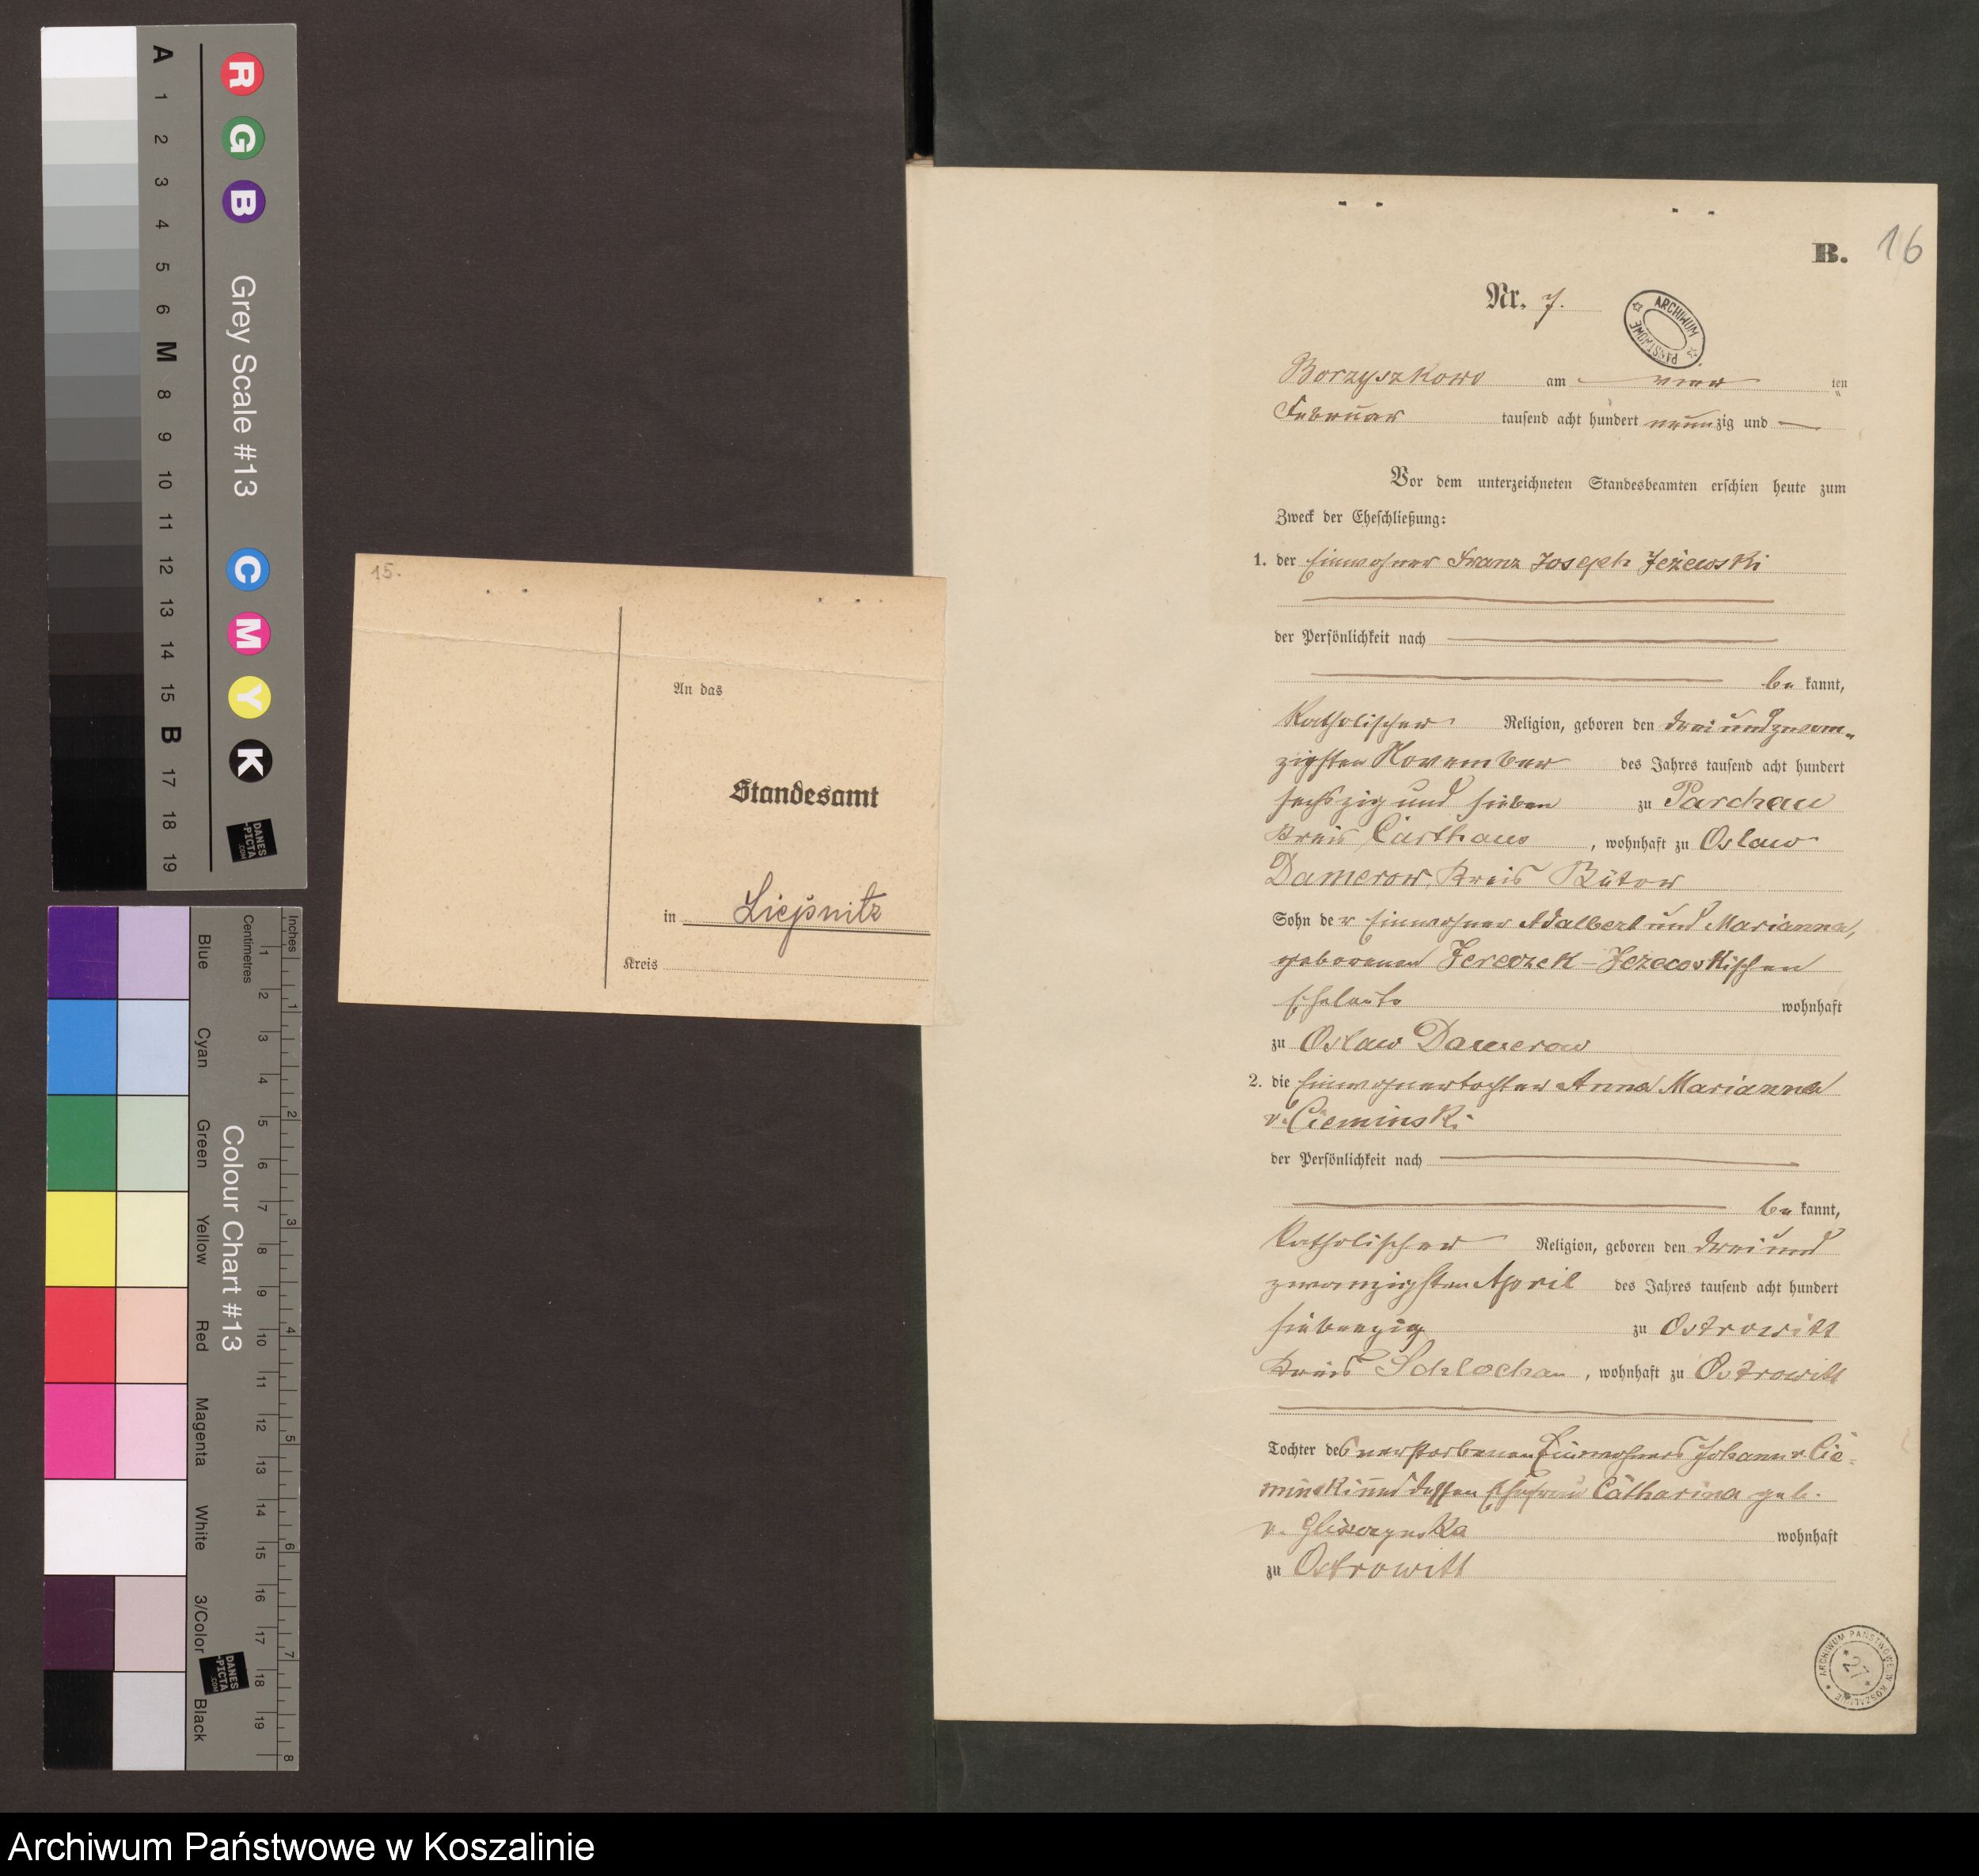 A 1 2 3 4 5 6 M 8 9 10 11 12 13 14 15 B 17 18 19
R G B Grey Scale #13 C M Y K
DANES
-PICTA
.COM
Blue Cyan Green Yellow Red Magenta White 3/Color Black
Colour Chart #13
Centimetres 1 2 3 4 5 6 7 8 9 10 11 12 13 14 15 16 17 18 19
Inches 1 2 3 4 5 6 7 8
DANES
-PICTA
.COM
15.
An das
Standesamt
in Liepnitz
Kreis
B. 16
Nr. 7.
ARCHIWUM PAŃSTWOWE
Borzyszkowo am vier ten
Februar tausend acht hundert neunzig und —
Vor dem unterzeichneten Standesbeamten erschien heute zum
Zweck der Eheschließung:
1. der Einwohner Franz Joseph Jeżewski
der Persönlichkeit nach
be kannt,
katholischer Religion, geboren den drei und zwan-
zigsten November des Jahres tausend acht hundert
sechszig und sieben zu Parchau
Kreis Carthaus, wohnhaft zu Oslaw
Damerow, Kreis Bütow
Sohn der Einwohner Adalbert und Marianna,
geborenen Jereczek-Jezewskischen
Eheleute wohnhaft
zu Oslaw Damerow
2. die Einwohnertochter Anna Marianna
v. Cieminski
der Persönlichkeit nach
be kannt,
katholischer Religion, geboren den drei und
zwanzigsten April des Jahres tausend acht hundert
siebenzig zu Ostrowitt
Kreis Schlochau, wohnhaft zu Ostrowitt
Tochter des verstorbenen Einwohners Johann v. Cie-
minski und dessen Ehefrau Catharina geb.
v. Gliszczynska wohnhaft
zu Ostrowitt
ARCHIWUM PAŃSTWOWE W KOSZALINIE
27
Archiwum Państwowe w Koszalinie